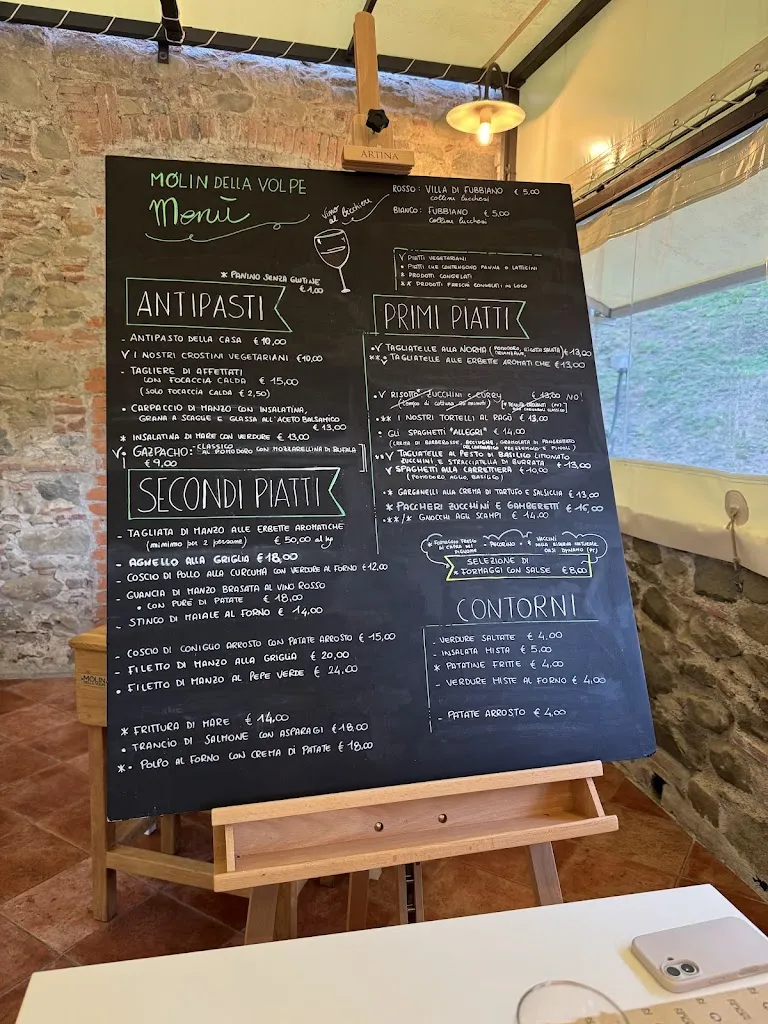 ARTINA
MOLIN DELLA VOLPE
Menù
Vino al bicchiere
ROSSO: VILLA DI FUBBIANO € 5,00
colline lucchesi
BIANCO: FUBBIANO € 5,00
colline lucchesi
V PIATTI VEGETARIANI
• PIATTI CHE CONTENGONO PANNA O LATTICINI
* PRODOTTI CONGELATI
** PRODOTTI FRESCHI CONGELATI IN LOCO
* PANINO SENZA GLUTINE
€ 1,00
ANTIPASTI
- ANTIPASTO DELLA CASA € 10,00
V I NOSTRI CROSTINI VEGETARIANI €10,00
- TAGLIERE DI AFFETTATI
CON FOCACCIA CALDA € 15,00
(SOLO FOCACCIA CALDA € 2,50)
• CARPACCIO DI MANZO CON INSALATINA,
GRANA A SCAGLIE E GLASSA ALL'ACETO BALSAMICO
€ 13,00
* INSALATINA DI MARE CON VERDURE € 13,00
V• GAZPACHO: CLASSICO
AL POMODORO CON MOZZARELLINA DI BUFALA
€ 9,00
SECONDI PIATTI
- TAGLIATA DI MANZO ALLE ERBETTE AROMATICHE
(minimo per 2 persone) € 50,00 al kg
- AGNELLO ALLA GRIGLIA € 18,00
- COSCIO DI POLLO ALLA CURCUMA CON VERDURE AL FORNO € 12,00
- GUANCIA DI MANZO BRASATA AL VINO ROSSO
• CON PURÈ DI PATATE € 18,00
- STINCO DI MAIALE AL FORNO € 14,00
-
- COSCIO DI CONIGLIO ARROSTO CON PATATE ARROSTO € 15,00
- FILETTO DI MANZO ALLA GRIGLIA € 20,00
• FILETTO DI MANZO AL PEPE VERDE € 24,00
* FRITTURA DI MARE € 14,00
• TRANCIO DI SALMONE CON ASPARAGI €18,00
*• POLPO AL FORNO CON CREMA DI PATATE € 18,00
PRIMI PIATTI
•V TAGLIATELLE ALLA NORMA (POMODORO, RICOTA SALATA, MELANZANE) € 13,00
**• TAGLIATELLE ALLE ERBETTE AROMATICHE € 13,00
•V RISOTTO ZUCCHINI E CURRY € 13,00 NO!
(tempo di cottura 20 minuti)
•** I NOSTRI TORTELLI AL RAGÙ € 13,00
• GLI SPAGHETTI "ALLEGRI" € 14,00
(CREMA DI BARBEROSSE, ACCIUGHE, GRANOLATA DI PANGRATTATO
E PINOLI)
**V TAGLIATELLE AL PESTO DI BASILICO LIMONATO
ZUCCHINI E STRACCIATELLA DI BURRATA € 13,00
V SPAGHETTI ALLA CARRETTIERA € 10,00
(POMODORO, AGLIO, BASILICO)
• GARGANELLI ALLA CREMA DI TARTUFO E SALSICCIA € 13,00
* PACCHERI ZUCCHINI E GAMBERETTI € 15,00
**/* GNOCCHI AGLI SCAMPI € 14,00
FORMAGGIO FRESCO
DI CAPRA
- PECORINO
VACCINI
DELLA RISERVA NATURALE
OASI DYNAMO (PT)
SELEZIONE DI
• FORMAGGI CON SALSE € 8,00
CONTORNI
- VERDURE SALTATE € 4,00
- INSALATA MISTA € 5,00
* PATATINE FRITTE € 4,00
- VERDURE MISTE AL FORNO € 4,00
- PATATE ARROSTO € 4,00
MOLIN